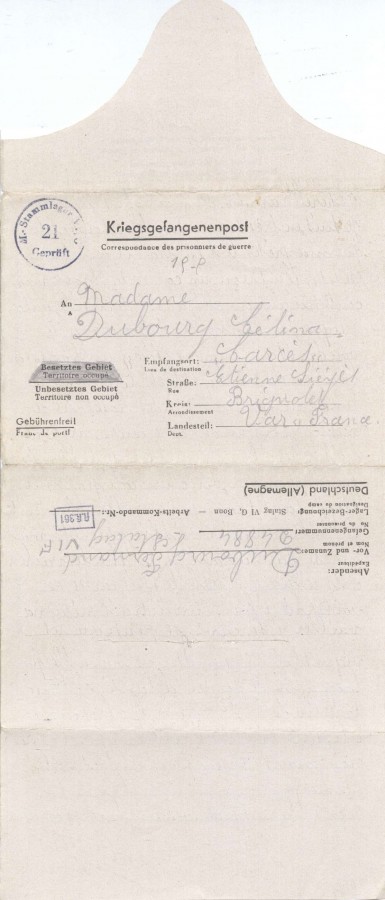 M.-Stammlager
21
Geprüft
Kriegsgefangenenpost
Correspondance des prisonniers de guerre
19-P
An Madame
A
Dubourg Célina
Empfangsort: Carcès
Lieu de destination
Besetztes Gebiet
Territoire occupé
Unbesetztes Gebiet
Territoire non occupé
Straße: Etienne
Rue
Kreis: Brignoles
Arrondissement
Landesteil: Var France
Dépt.
Gebührenfrei!
Franc de port!
Absender:
Expéditeur
Vor- und Zuname: Dubourg Fernand
Nom et prénom
Gefangenennummer: 24884 Stalag VI F
No du prisonnier
Lager-Bezeichnung: Stalag VI, G, Bonn — Arbeits-Kommando-Nr.:
Désignation du camp
Deutschland (Allemagne)